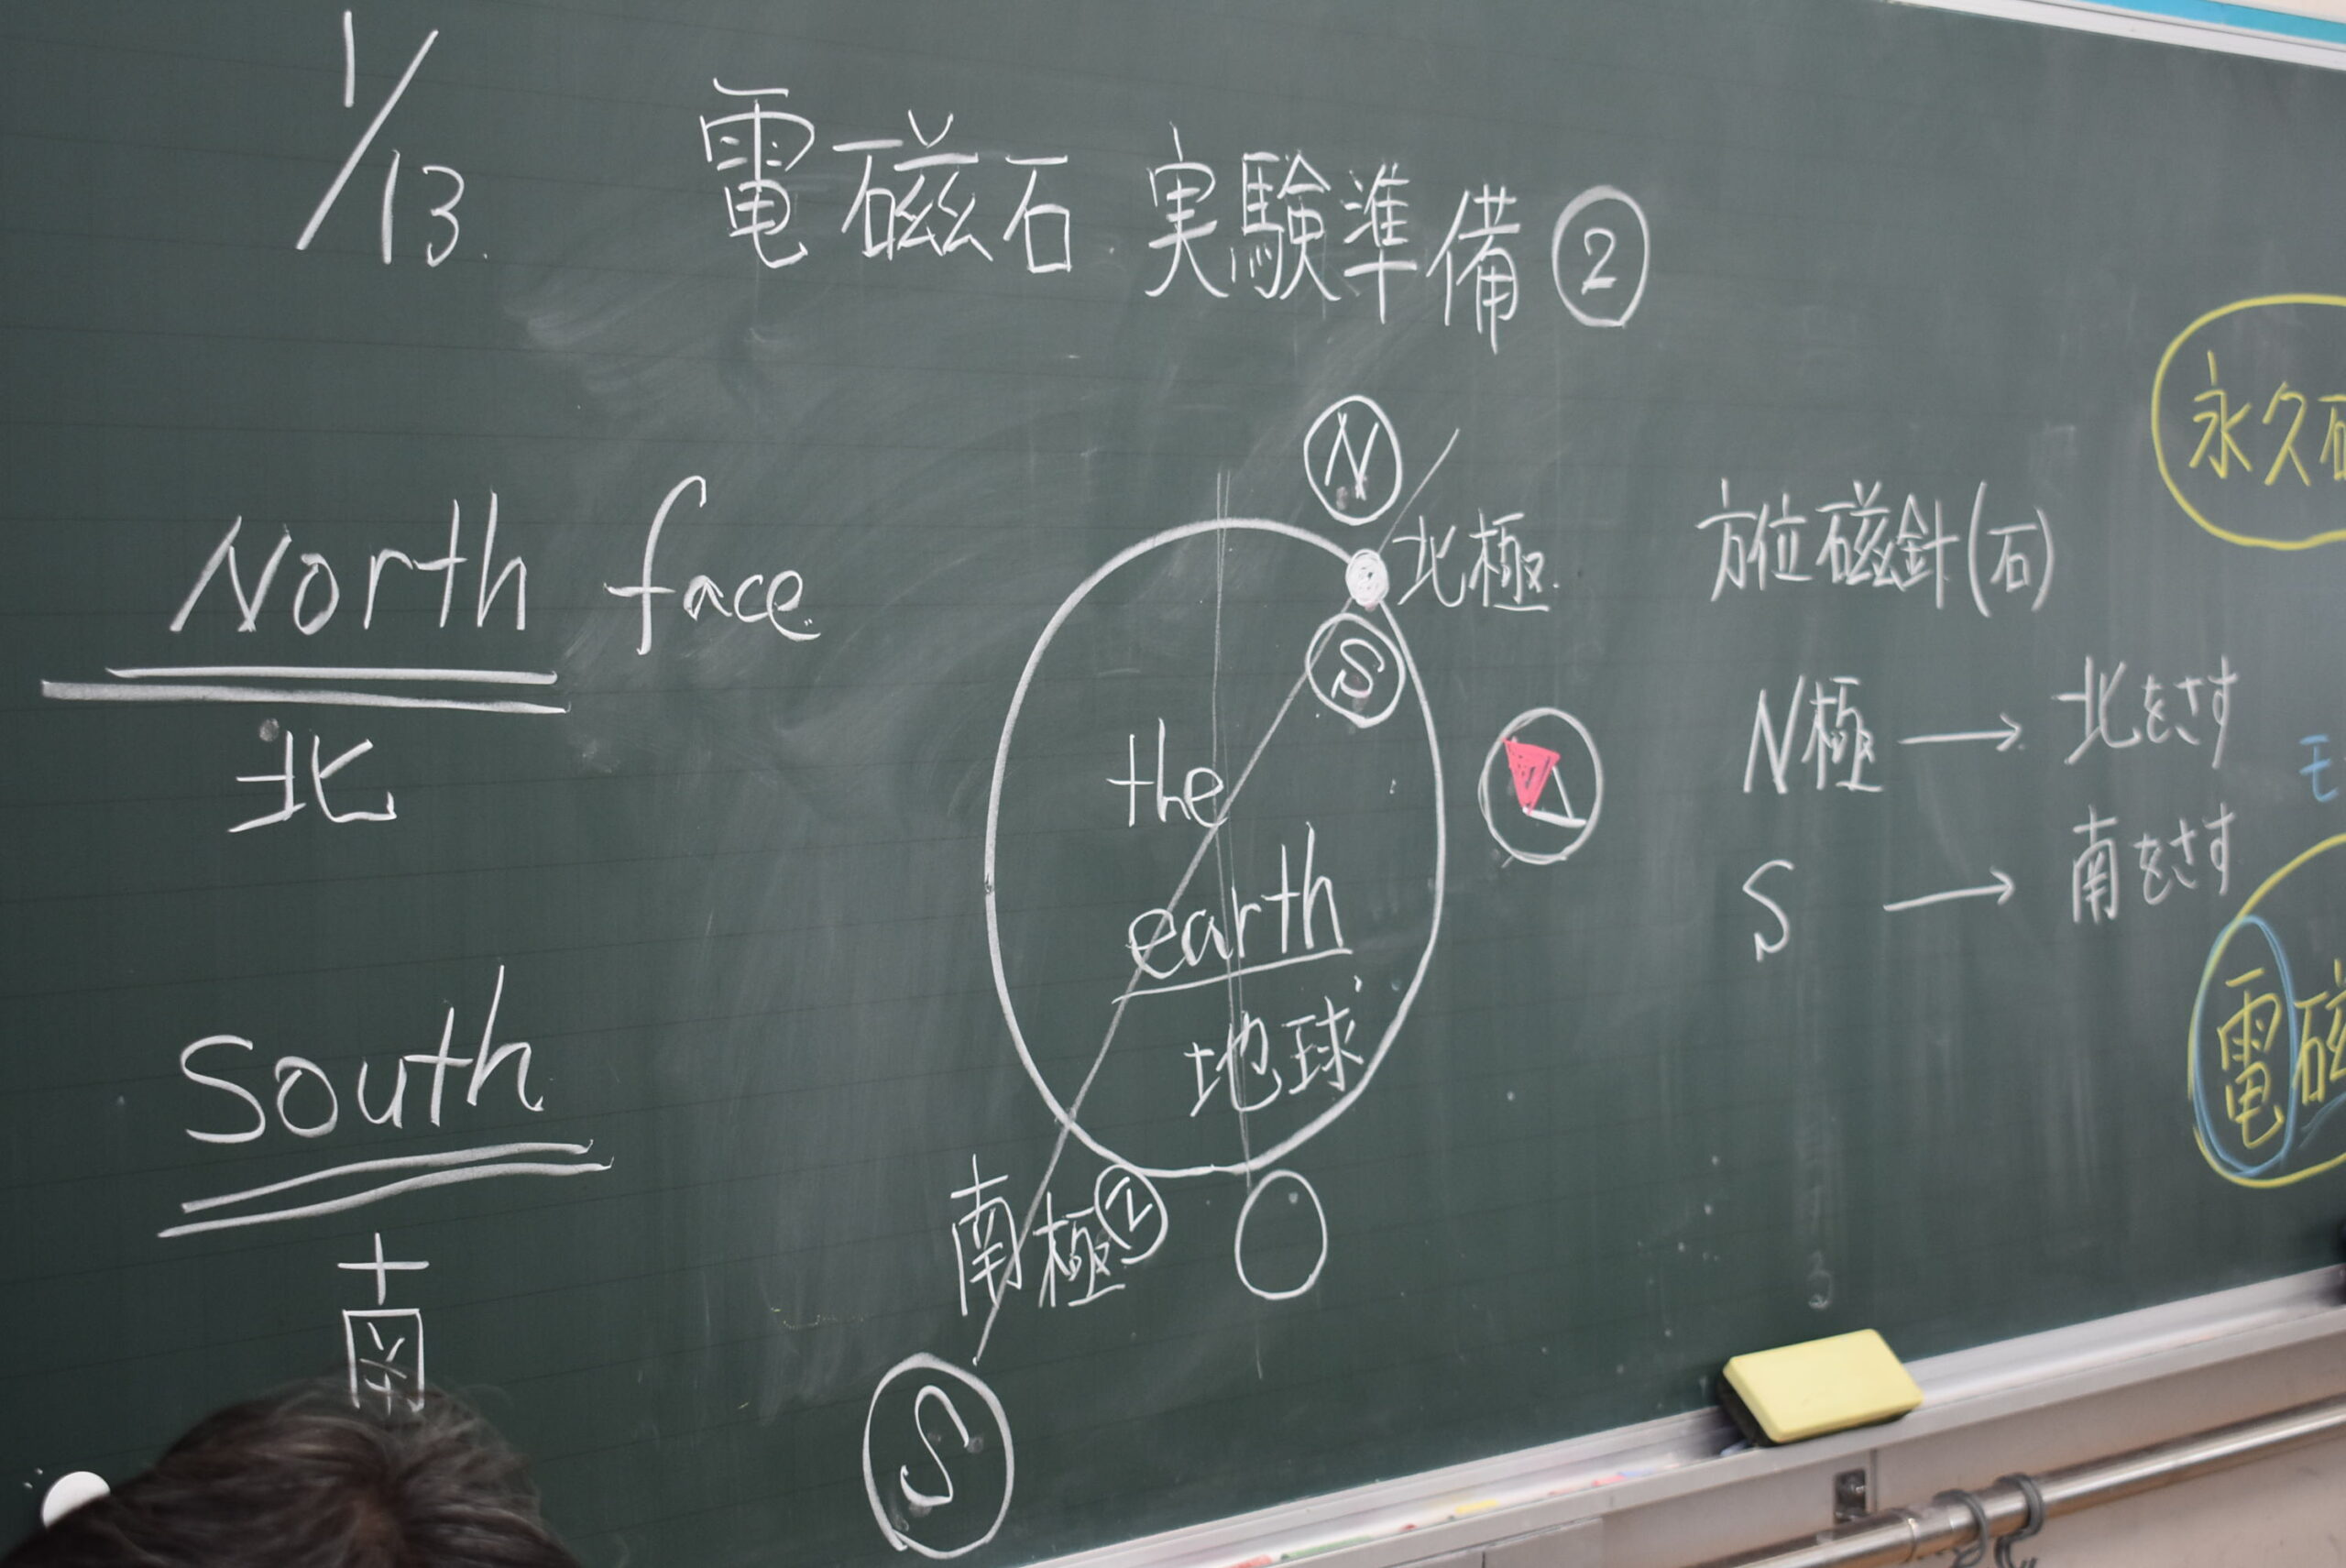 1/13. 電磁石 実験準備②
North face
北
South
南
N
北極
S
the
earth
地球
南極
S
方位磁針(石)
N極 → 北をさす
S → 南をさす
永久
モ
電磁